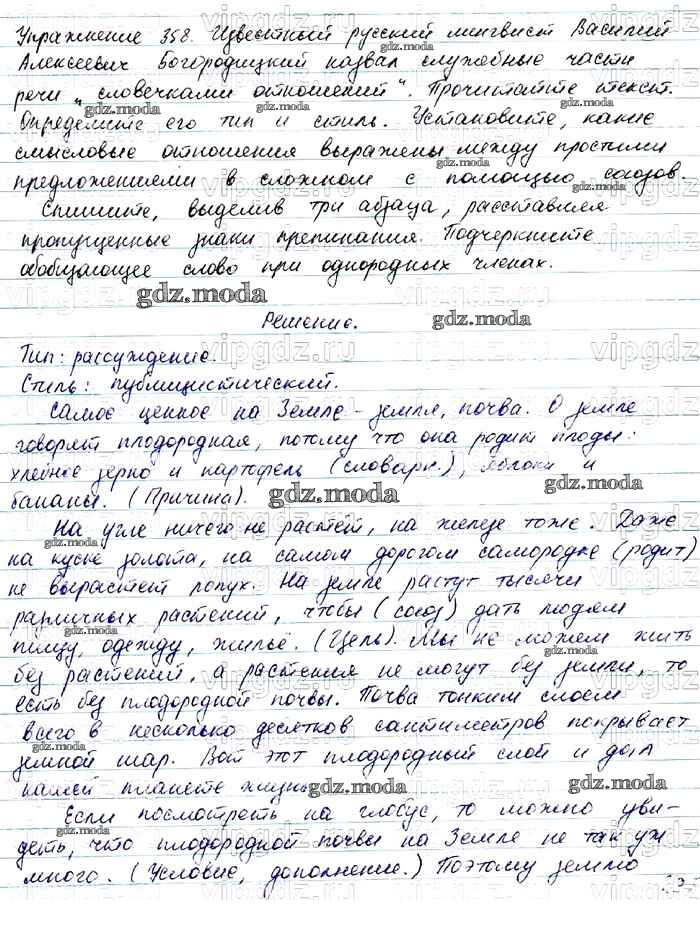 Упражнение 358. Известный русский лингвист Василий
Алексеевич Богородицкий назвал служебные части
речи „словечками отношений". Прочитайте текст.
Определите его тип и стиль. Установите, какие
смысловые отношения выражены между простыми
предложениями в сложном с помощью союзов.
Спишите, выделив три абзаца, расставляя
пропущенные знаки препинания. Подчеркните
обобщающее слово при однородных членах.
gdz.moda
Решение.
gdz.moda
Тип: рассуждение.
Стиль: публицистический.
Самое ценное на Земле - земля, почва. О земле
говорят плодородная, потому что она родит плоды:
хлебное зерно и картофель (словарн.), яблоки и
бананы. (Причина).
gdz.moda
На угле ничего не растёт, на железе тоже. Даже
на куске золота, на самом дорогом самородке (родит)
не вырастет лопух. На земле растут тысячи
различных растений, чтобы (союз) дать людям
пищу, одежду, жильё. (Цель). Мы не можем жить
без растений, а растения не могут без земли, то
есть без плодородной почвы. Почва тонким слоем
всего в несколько десятков сантиметров покрывает
земной шар. Вот этот плодородный слой и дал
нашей планете жизнь
gdz.moda
Если посмотреть на глобус, то можно уви-
деть, что плодородной почвы на Земле не так уж
много. (Условие, дополнение.) Поэтому землю